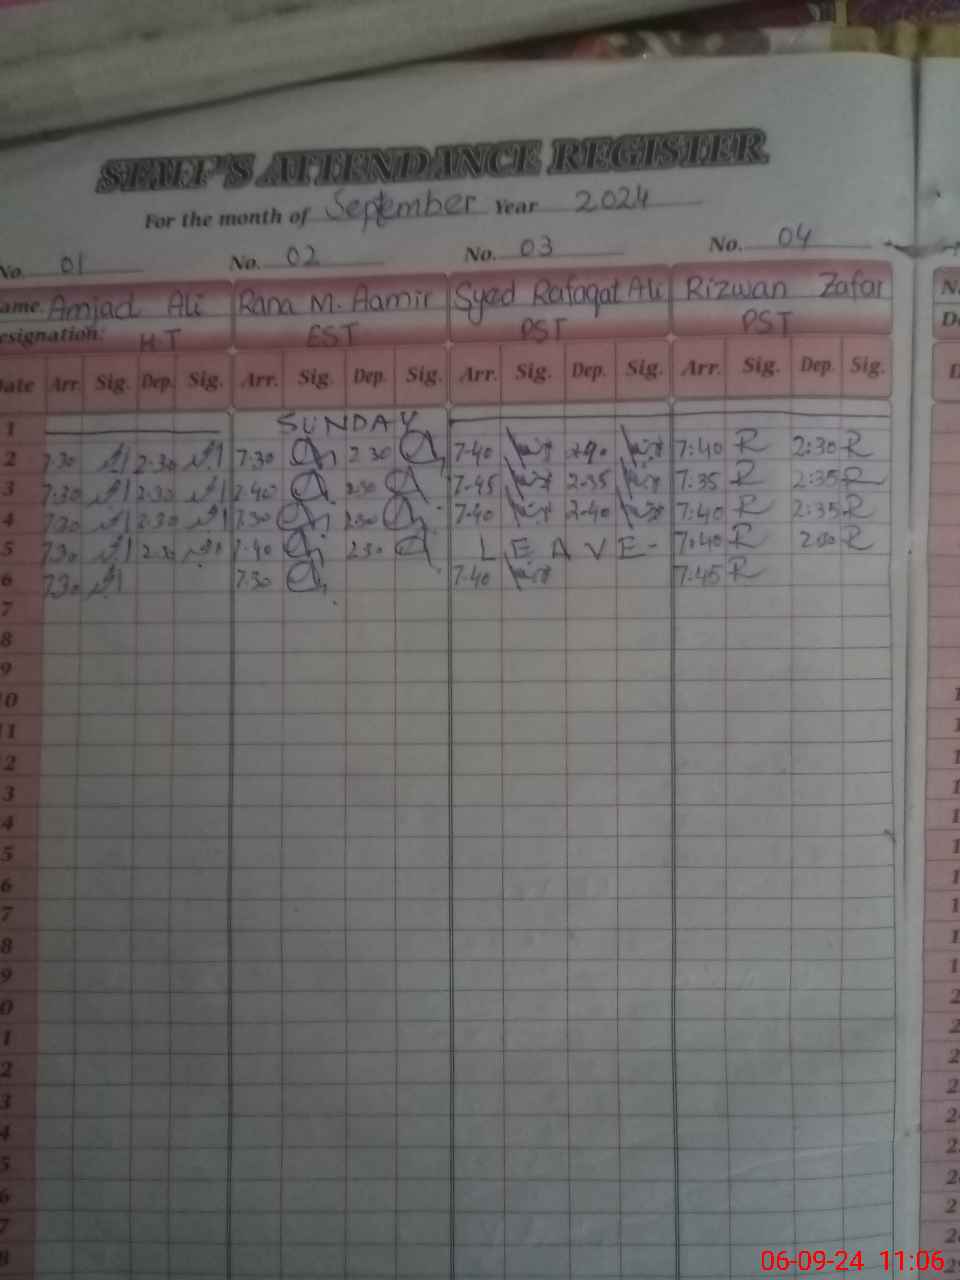 STAFF'S ATTENDANCE REGISTER
For the month of September Year 2024
No. 01 No. 02 No. 03 No. 04
ame. Amjad Ali Rana M. Aamir Syed Rafaqat Ali Rizwan Zafar
esignation: HT EST PST PST
Date Arr. Sig. Dep. Sig. Arr. Sig. Dep. Sig. Arr. Sig. Dep. Sig. Arr. Sig. Dep. Sig.
1 SUNDAY
2 7.30 2.30 7.30 2.30 7.40 7:40 R 2:30 R
3 7.30 2.30 7.40 2.30 7.45 2.35 7:35 R 2:35 R
4 7.30 2.30 7.30 2.30 7.40 2.40 7:40 R 2:35 R
5 7.30 2.30 7.40 2.30 LEAVE- 7:40 R 2:30 R
6 7.30 7.30 7.40 7:45 R
7
8
9
10
11
2
3
4
5
6
7
8
9
0
1
2
3
4
5
6
7
8
06-09-24 11:06